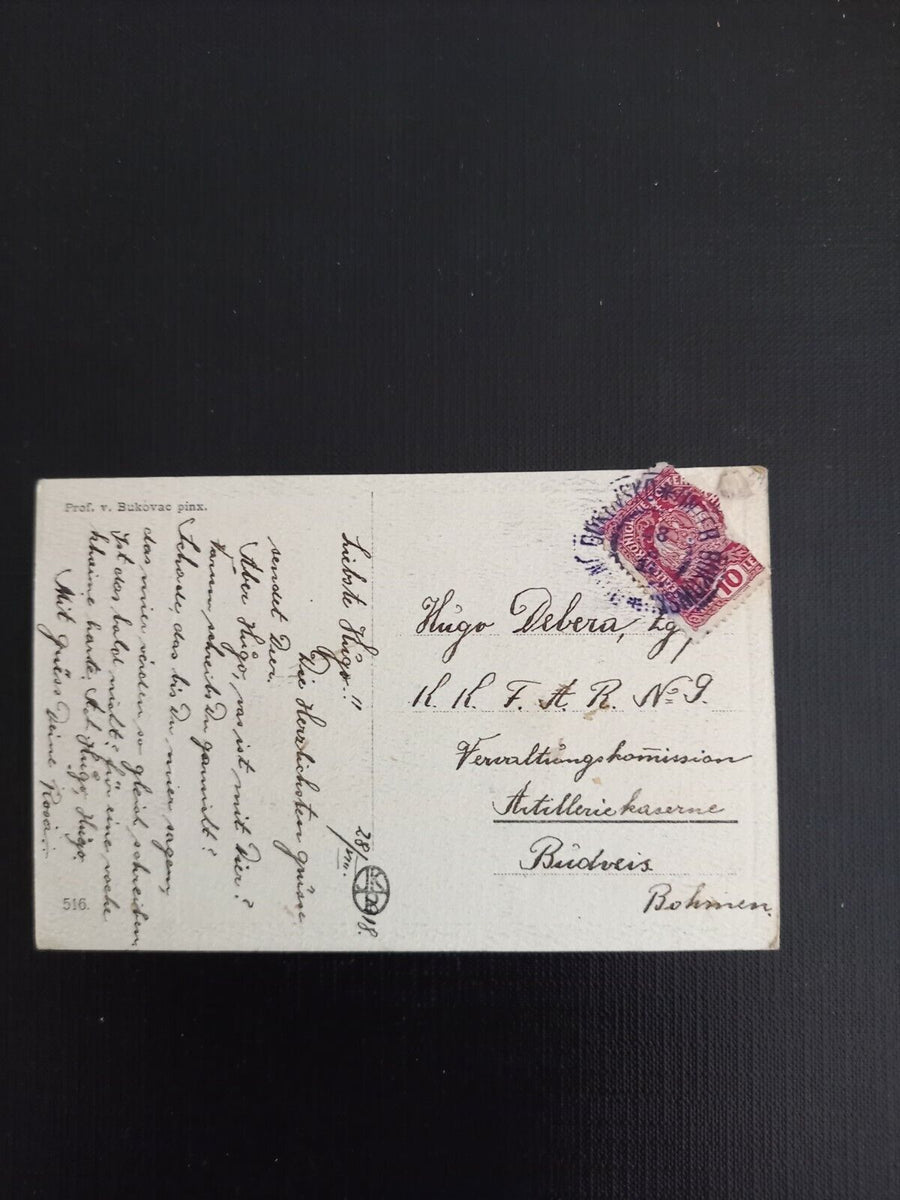 Prof. v. Bukovac pinx.
Liebste Hugo!!
28/
VIII. 1918.
Die Herzlichsten grüsse
sendet Dier.
Aber Hugo, was ist mit Dier?
Warum schreibs Du garnicht?
Schade, das bis Du nuer sagen,
das nuer werden so gleich schreiben
Ist das bald nicht: für eine woche
khaine karte. Ach Hugo, Hugo.
Mit grüss Deine Rosa.
516.
10
Hugo Debera, Zg,
K. K. F. A. R. No 9.
Vervaltungskommission
Artilleriekaserne
Budveis
Bohmen.